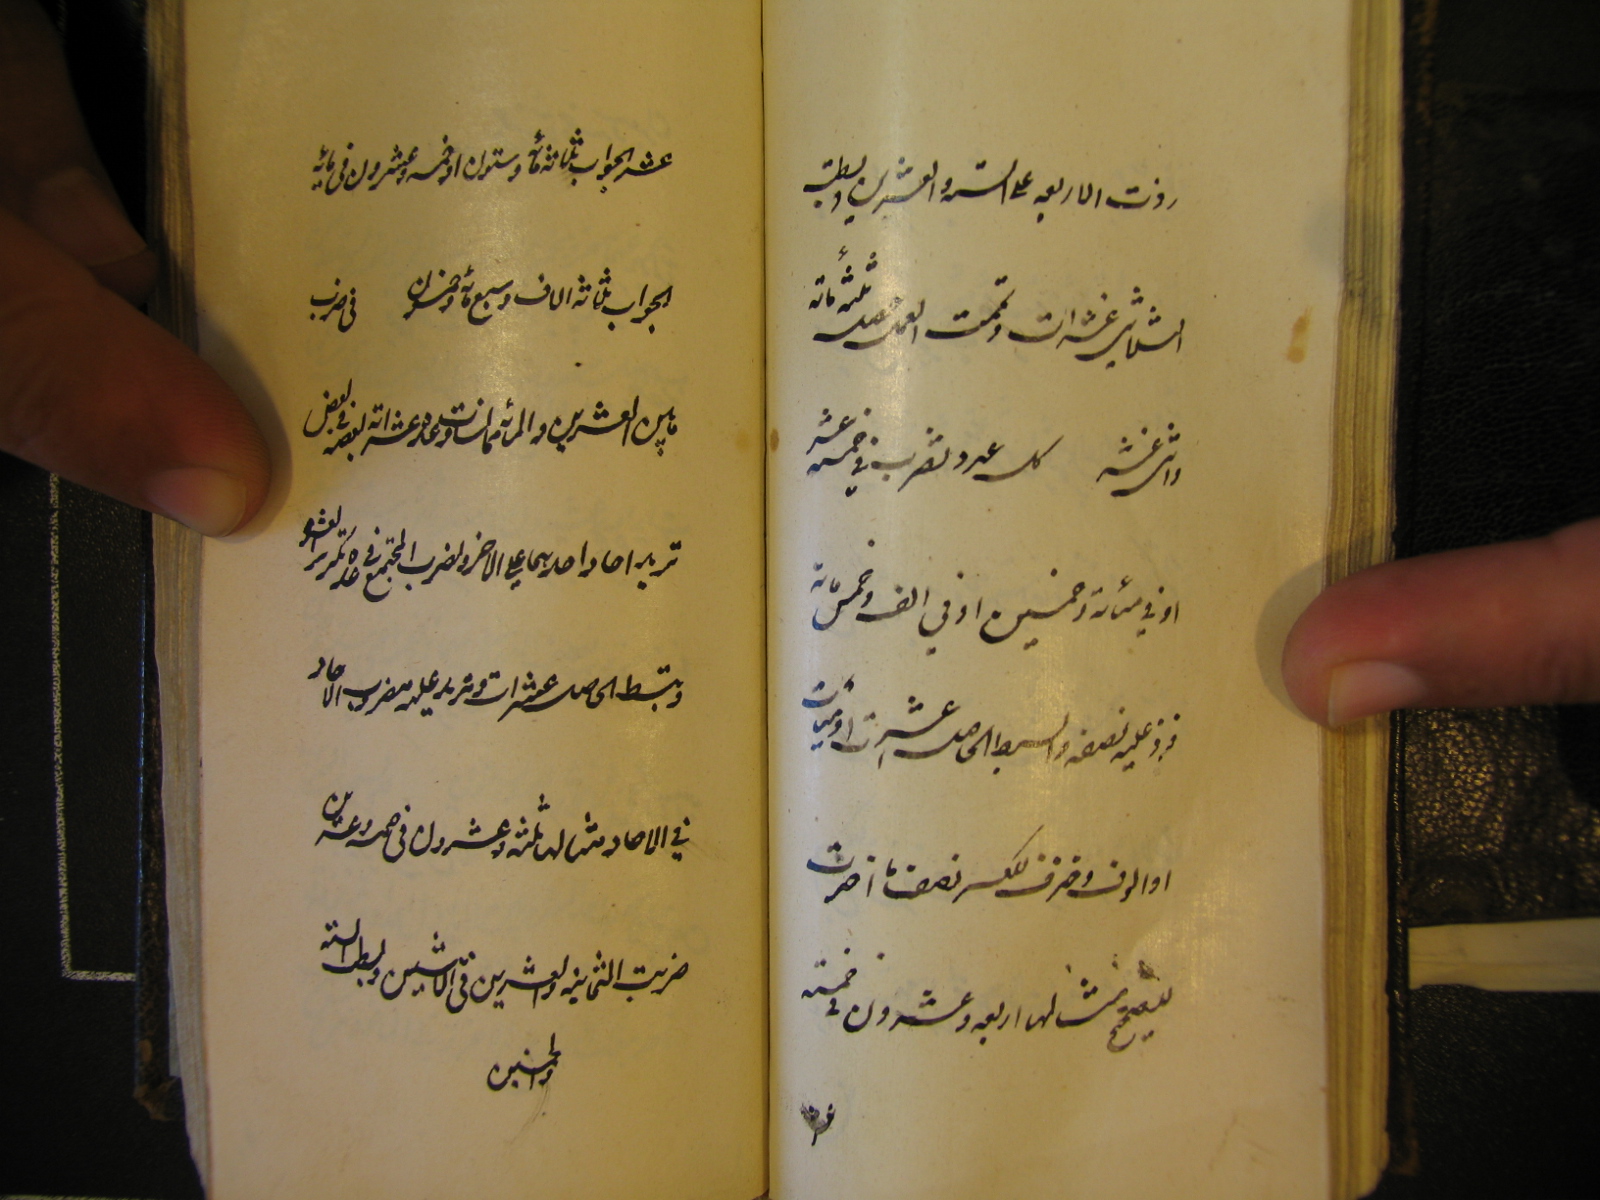 زدت الاربعه على الستة والعشرين وبسطت
الثلاثين عشرات وتممت العمل حصل ثلثمائة
واثنى عشر كل عدد تضرب في خمسة عشر
او في مائة وخمسين او في الف وخمس مائة
فزد عليه نصفه وابسط الحاصل عشرات او مئات
او الوف وخذ للكسر نصف ما اخذت
للصحيح مثالها اربعه وعشرون في خمسة
عشر
عشر الجواب ثلثمائة وستون او خمسه وعشرون في مائه
الجواب ثلثة الاف وسبع مائة وخمسون في ضرب
مابين العشرين والمائة مما تساوت عدة عشراته بعضه في بعض
تزيد احاد احدهما على الاخر وتضرب المجتمع في عدة تكرير العشرة
وتبسط الحاصل عشرات وتزيد عليه مضروب الاحاد
في الاحاد مثالها ثلثة وعشرون في خمسه وعشرين
ضربت الثمانية والعشرين في الاثنين وبسطت الستة
والخمسين